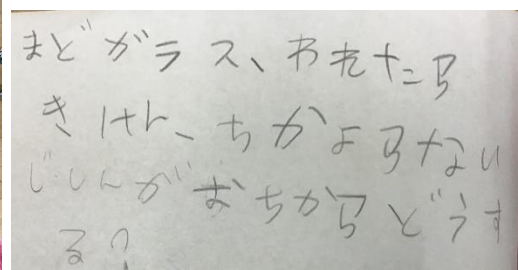 まどガラス、われたら
きけん、ちかよらない
じしんがおちからどうす
る?